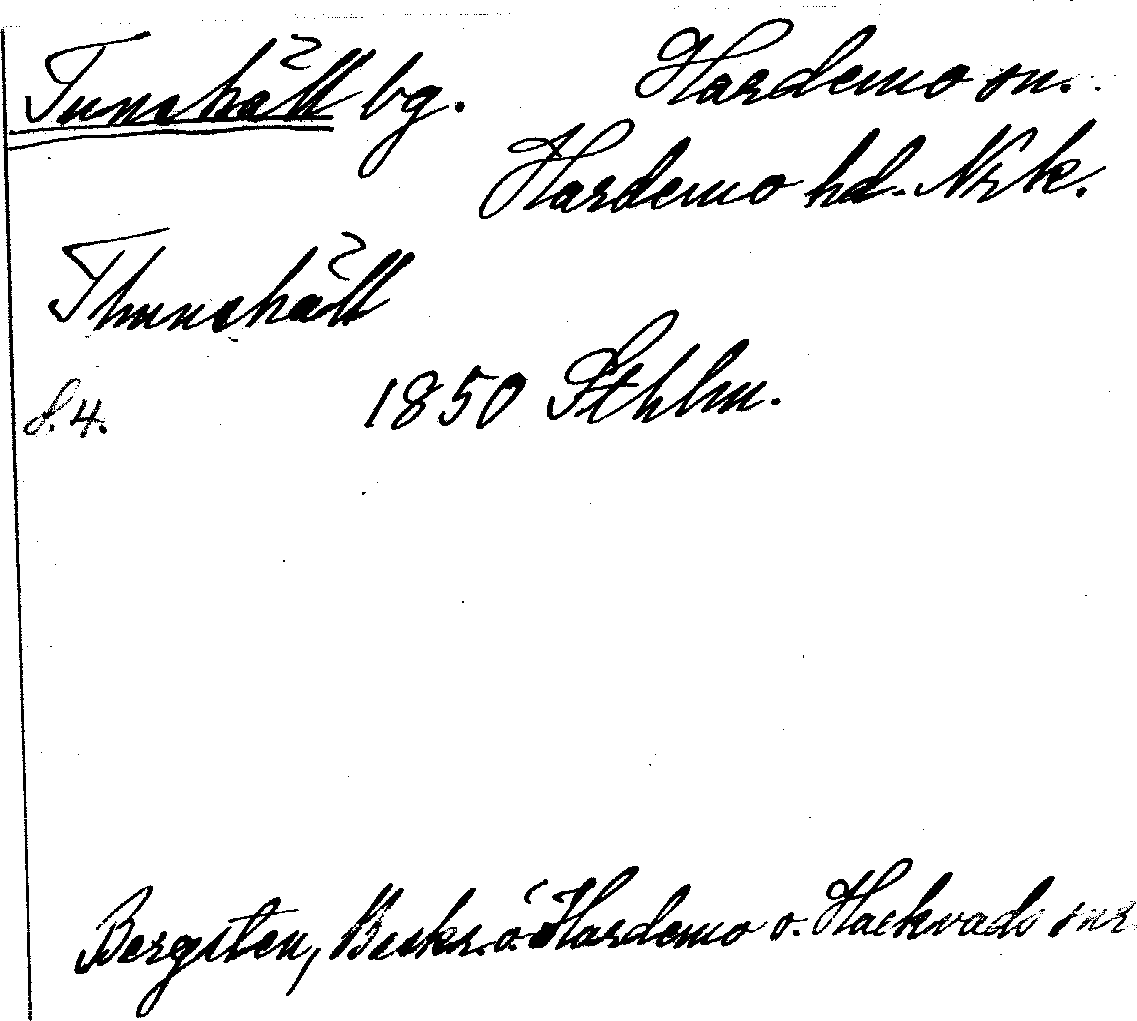 Tunshäll bg. Hardemo sn.
Hardemo hd. Nrk.
Thunshäll
s. 4. 1850 Sthlm.
Bergsten, Beskr. ö. Hardemo o. Hackvads snr